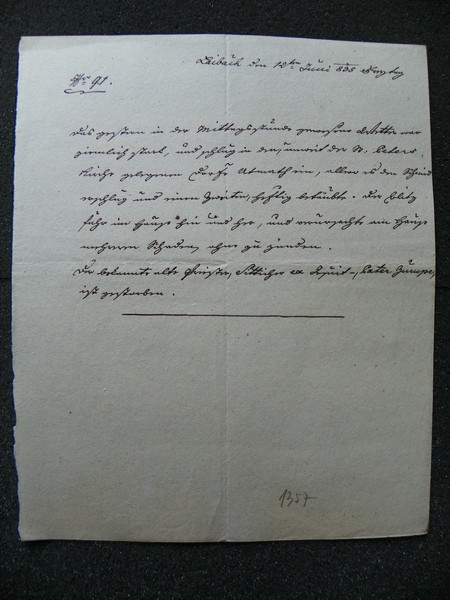 Laibach den 12ten Juni 835 Freytag
Nr 91.
Das gestern in der Mittagsstunde gewesene Wetter war
ziemlich stark, und schlug in dem, unweit der St. Peters
Kirche gelegenen Dorfe Udmath ein, allwo es den Schmid
erschlug und einen Zweiten, heftig betäubte. Der Blitz
fuhr im Hause hin und her, und verursachte am Hause
mehrern Schaden, ohne zu zünden.
Der bekannte alte Priester, ex Jesuit, Pater
ist gestorben.
1357